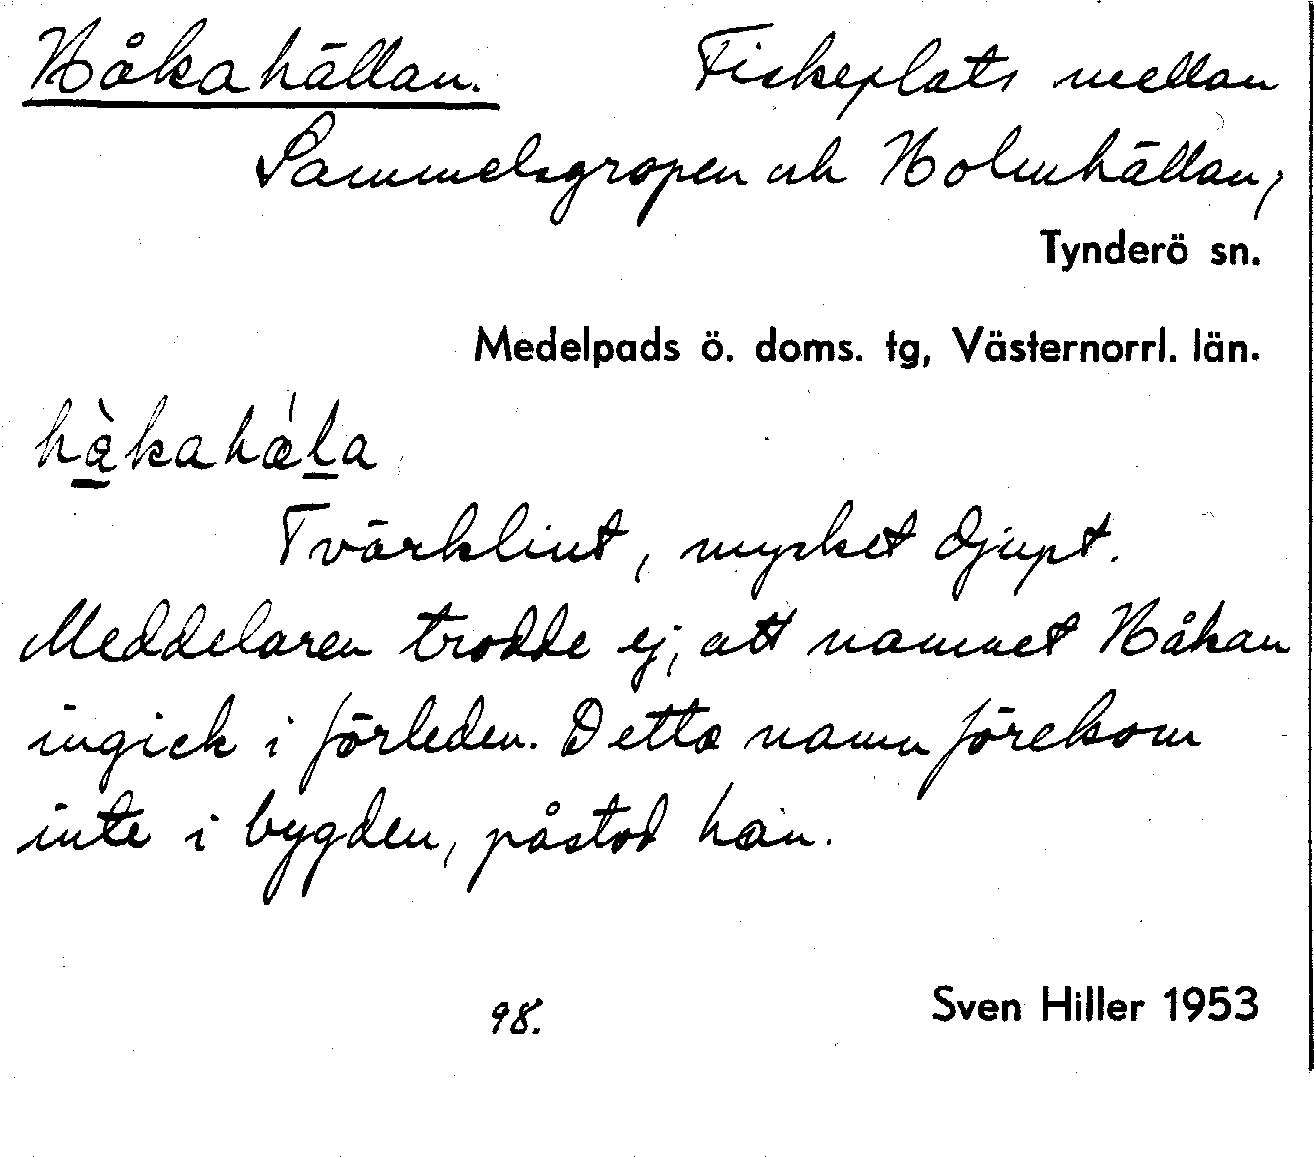 Håkahällan. Fiskeplats mellan
Sammelsgropen och Holmhällan,
Tynderö sn.
Medelpads ö. doms. tg, Västernorrl. län.
hà̱kahǽḻa
Tvärklint, mycket djupt.
Meddelaren trodde ej, att namnet Håkan
ingick i förleden. Detta namn förekom
inte i bygden, påstod han.
98. Sven Hiller 1953